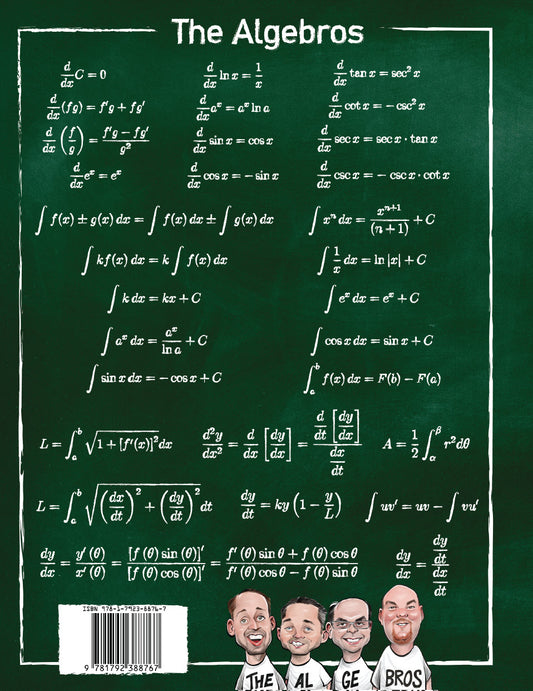 The Algebros
d/dx C = 0
d/dx ln x = 1/x
d/dx tan x = sec² x
d/dx (fg) = f'g + fg'
d/dx aˣ = aˣ ln a
d/dx cot x = − csc² x
d/dx (f/g) = (f'g − fg')/g²
d/dx sin x = cos x
d/dx sec x = sec x · tan x
d/dx eˣ = eˣ
d/dx cos x = − sin x
d/dx csc x = − csc x · cot x
∫ f(x) ± g(x) dx = ∫ f(x) dx ± ∫ g(x) dx
∫ xⁿ dx = xⁿ⁺¹/(n+1) + C
∫ kf(x) dx = k ∫ f(x) dx
∫ 1/x dx = ln |x| + C
∫ k dx = kx + C
∫ eˣ dx = eˣ + C
∫ aˣ dx = aˣ/ln a + C
∫ cos x dx = sin x + C
∫ sin x dx = − cos x + C
∫ₐᵇ f(x) dx = F(b) − F(a)
L = ∫ₐᵇ √(1 + [f'(x)]²) dx
d²y/dx² = d/dx [dy/dx] = (d/dt [dy/dx])/(dx/dt)
A = 1/2 ∫_α^β r²dθ
L = ∫ₐᵇ √((dx/dt)² + (dy/dt)²) dt
dy/dt = ky (1 − y/L)
∫ uv' = uv − ∫ vu'
dy/dx = y'(θ)/x'(θ) = [f(θ) sin(θ)]'/[f(θ) cos(θ)]' = (f'(θ) sin θ + f(θ) cos θ)/(f'(θ) cos θ − f(θ) sin θ)
dy/dx = (dy/dt)/(dx/dt)
ISBN 978-1-7923-8876-7
9 781792 388767
THE AL GE BROS